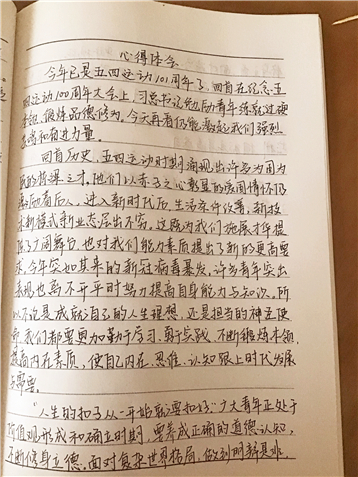 心得体会
今年已是五四运动101周年了,回首在纪念五
四运动100周年大会上,习总书记勉励青年练就过硬
本领、锻炼品德修为,今天再看仍能激起我们强烈
共鸣和奋进力量。
回首历史,五四运动时期涌现出许多为国为
民的栋梁之才,他们以赤子之心彰显的爱国情怀仍
激励后人,进入新时代后,生活条件改善,新技
术新模式新业态层出不穷,这既为我们施展才华提
供了广阔舞台,也对我们能力素质提出了新的更高要
求,今年突如其来的新冠病毒暴发,许多青年突出
表现也离不开平时努力提高自身能力与知识。所
以不论是成就自己的人生理想,还是担当的神圣使
命,我们都要更加勤于学习,勇于实践,不断锻炼本领,
提高内在素质,使自己内在、思维、认知跟上时代发展
与需要。
“人生的扣子从一开始就要扣好”广大青年正处于
价值观形成和确立时期,要养成正确的道德认知,
不断修身立德,面对复杂世界格局,做到明辨是非、